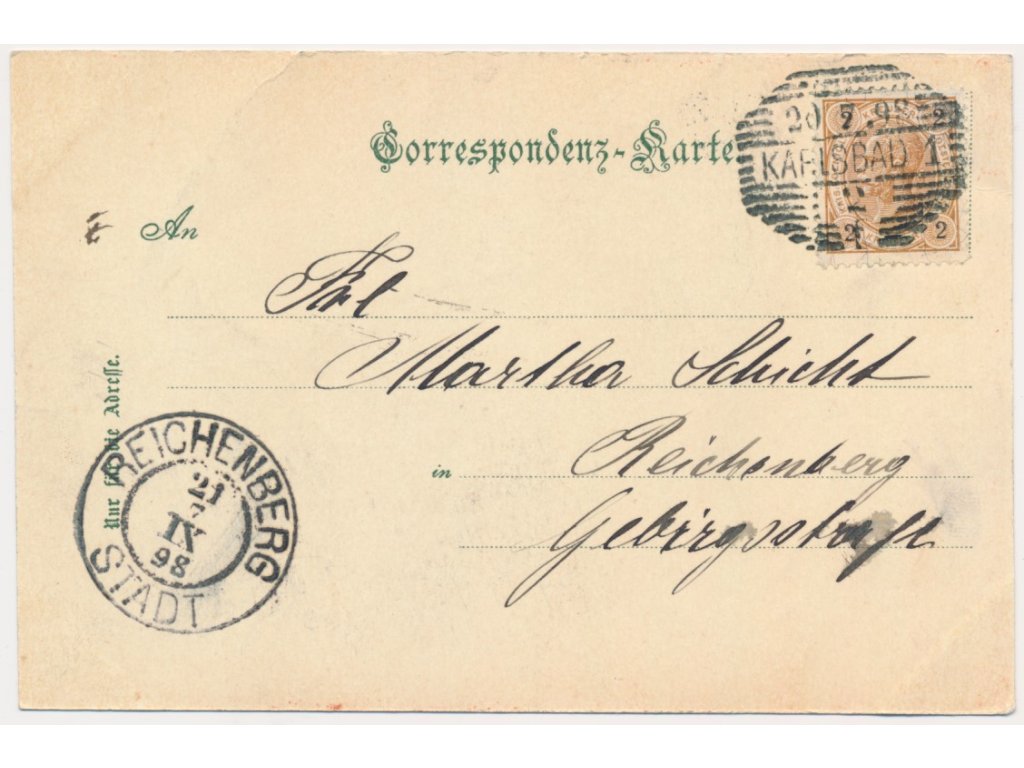 Correspondenz-Karte
20 7 98
KARLSBAD 1
2 2
2 2
An
Frl
Martha Schicht
in Reichenberg
Gebirgsstraße
Nur für die Adresse.
REICHENBERG
21
IX
98
STADT